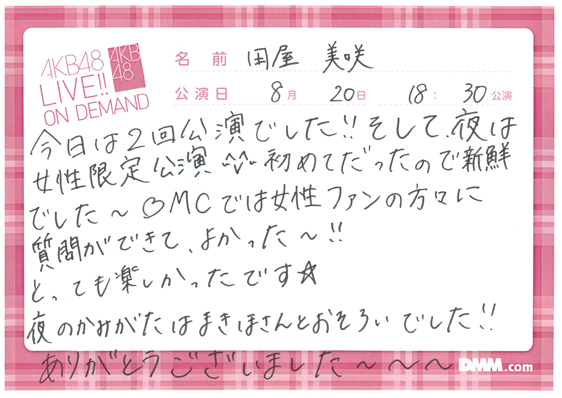 AKB48
LIVE!!
ON DEMAND
AKB
48
名前 田屋 美咲
公演日 8月 20日 18:30公演
今日は2回公演でした!!そして、夜は
女性限定公演 初めてだったので新鮮
でした〜○MCでは女性ファンの方々に
質問ができて、よかった〜!!
とっても楽しかったです☆
夜のかみがたはまきほさんとおそろいでした!!
ありがとうございました〜〜〜
DMM.com